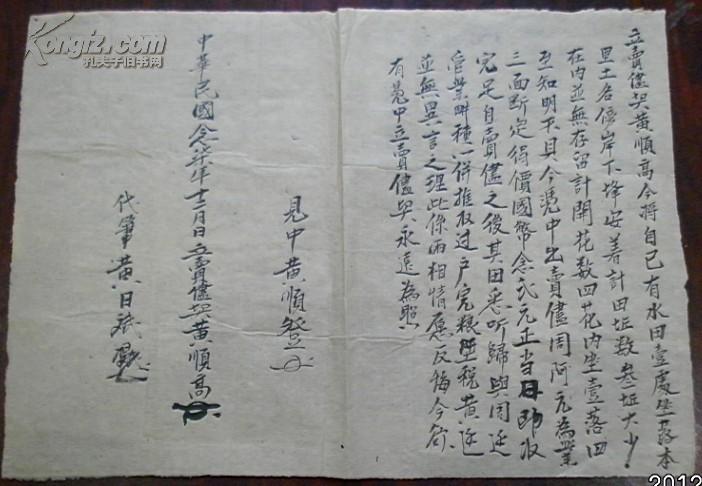 立賣儘契黃順高今將自己有水田壹處坐落本
里土名停岸下垟安着計田坵數叁坵大小
在內並無存留計開花數四花內坐壹落四
至知明不具今憑中出賣儘周阿元為業
三面断定得價國幣念弍元正當日即收
完足自賣儘之後其田悉听歸與周边
管業畊種一併推收过户完粮納税黃边
並無異言之理此係兩相情愿反悔今欲
有憑中立賣儘契永遠為照
見中黃順登
中華民國念柒年十二月日立賣儘契黃順高
代筆黃日斌
Kongfz.com
孔夫子旧书网
2012